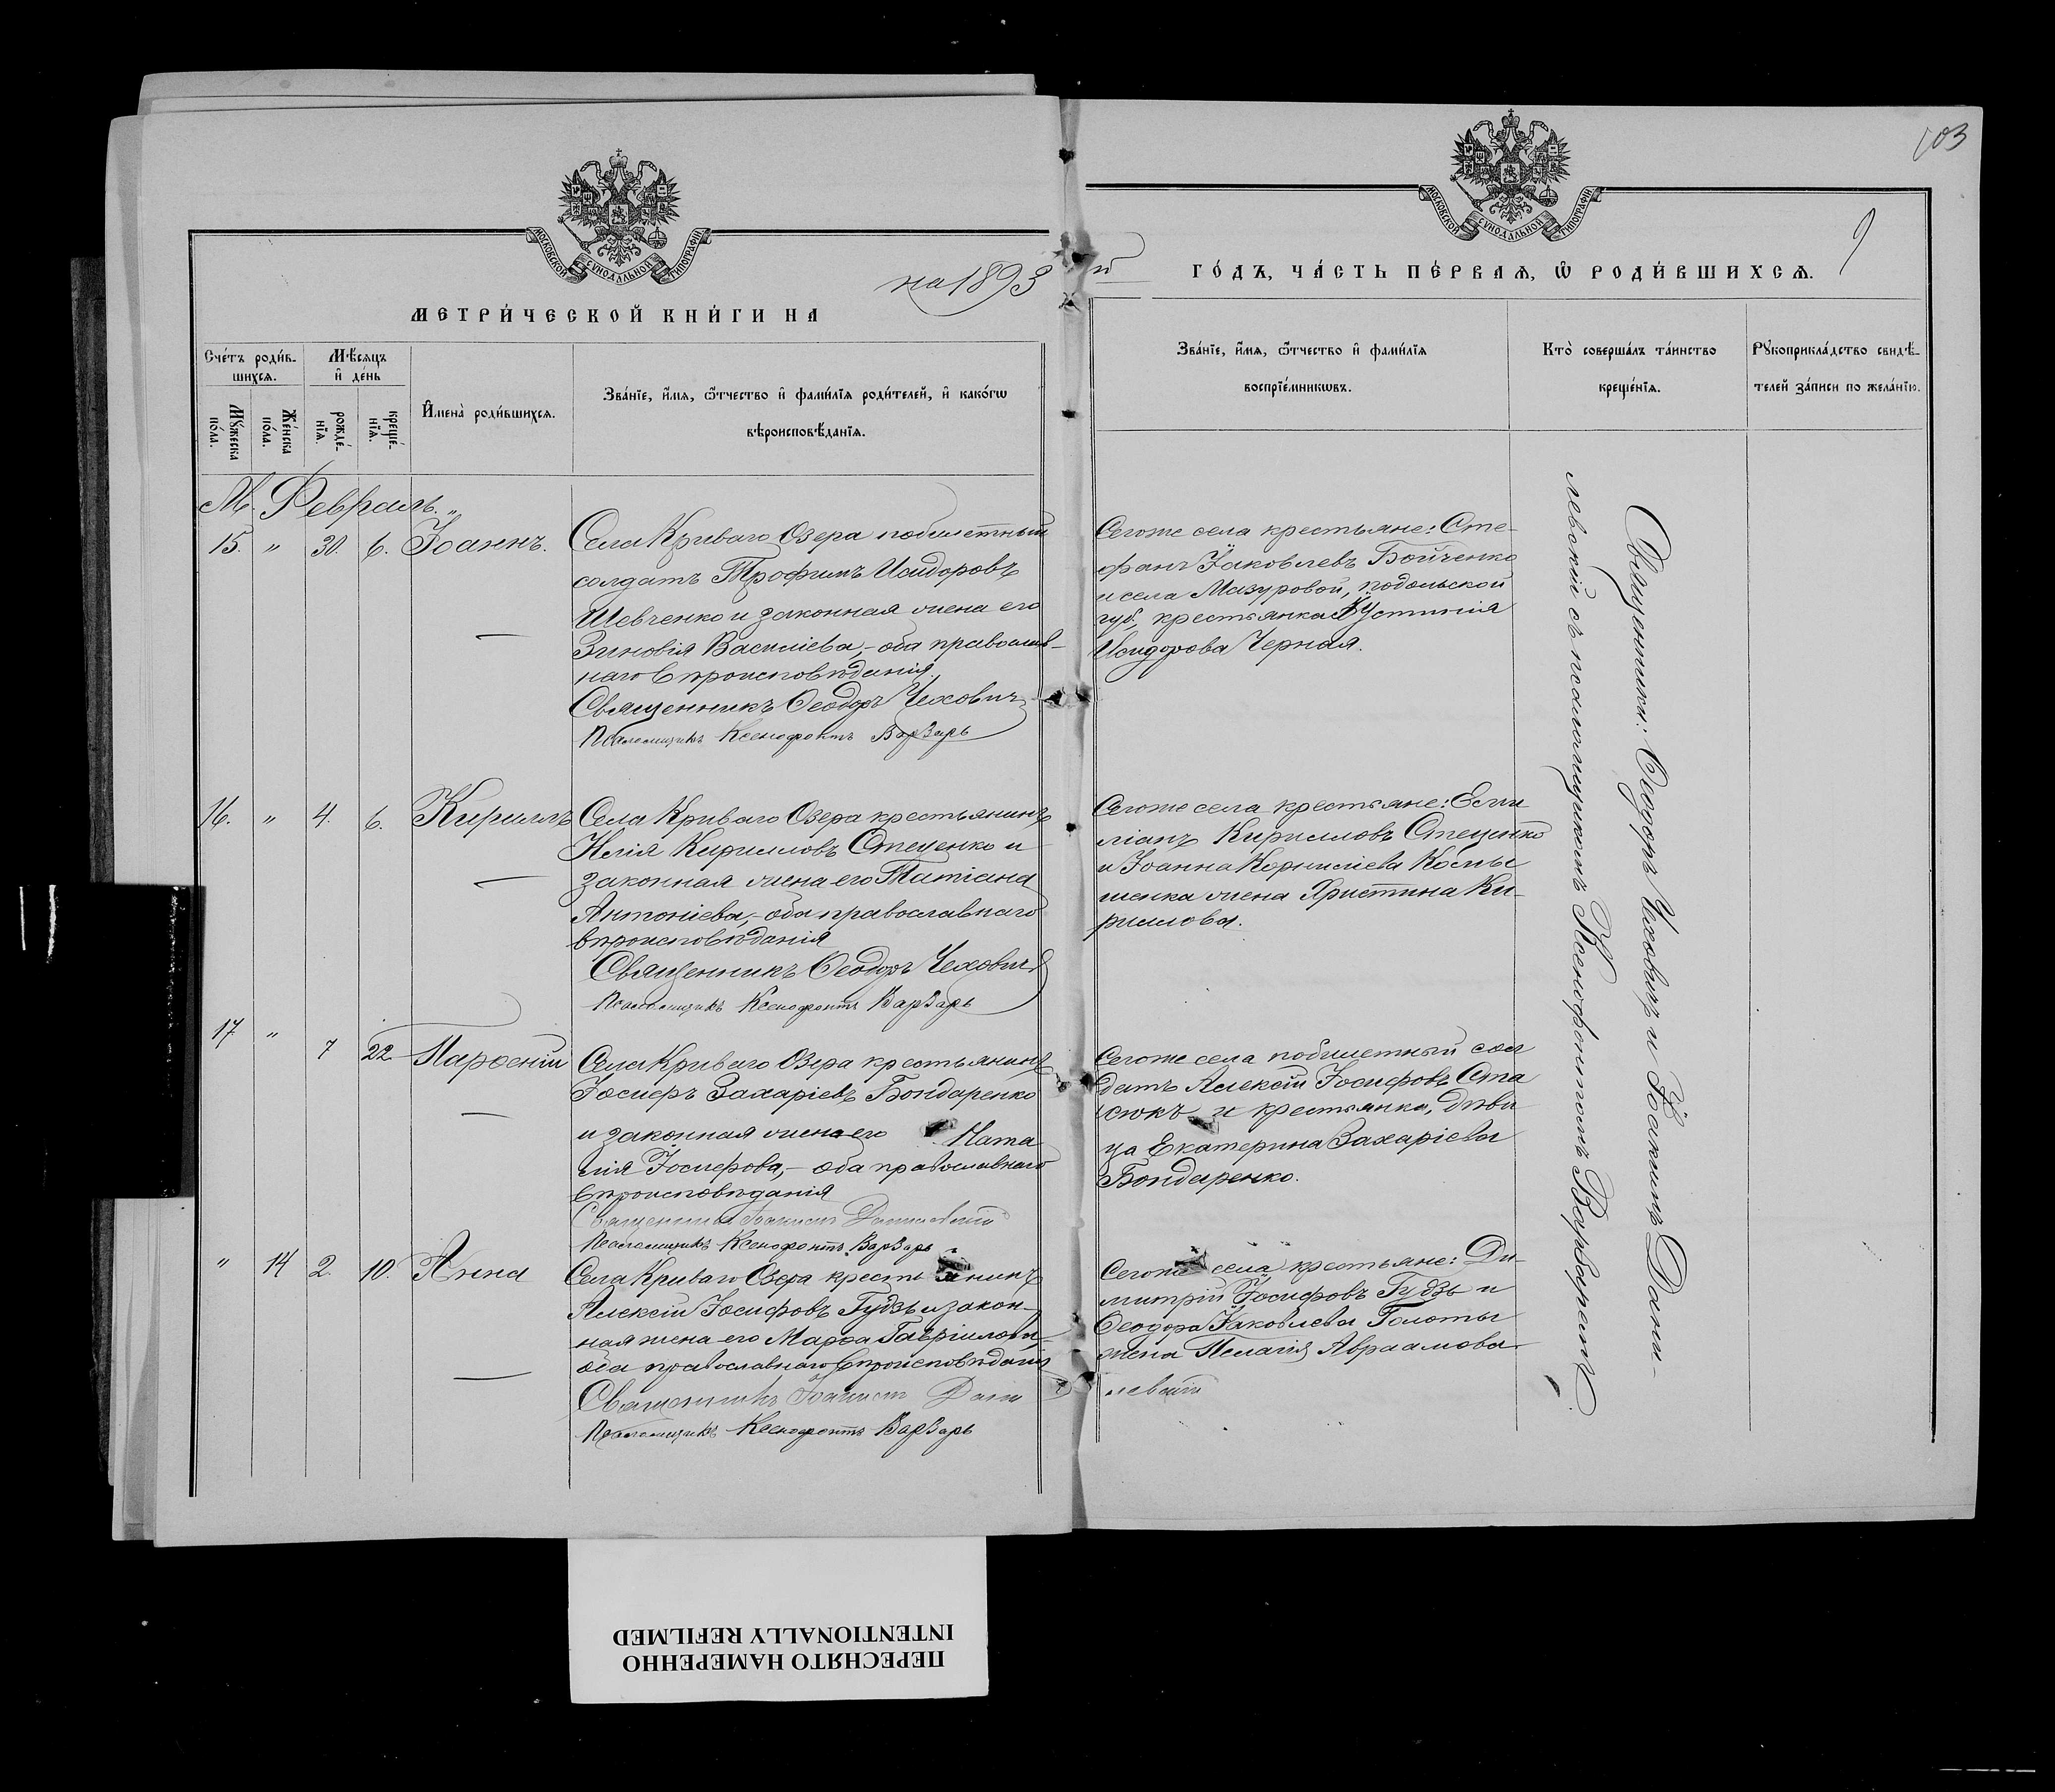 103
МОСКОВСКОЙ СѴНОДАЛЬНОЙ ТИПОГРАФИИ
МОСКОВСКОЙ СѴНОДАЛЬНОЙ ТИПОГРАФИИ
МЕТРИ́ЧЕСКОЙ КНИ́ГИ НА
на 1893 й
ГО́ДЪ, ЧА́СТЬ ПЕ́РВАѦ, Ѿ РОДИ́ВШИХСѦ.
Сче́тъ роди́в-
шихсѧ.
Мꙋ́жеска
по́ла.
Же́нска
по́ла.
Мѣ́сѧцъ
и҆ де́нь
рожде́-
нїѧ.
креще́-
нїѧ.
И҆мена̀ роди́вшихсѧ.
Зва́нїе, и҆́мѧ, ѻ҆́тчество и҆ фами́лїѧ роди́телей, и҆ како́гѡ
вѣроисповѣ́данїѧ.
Зва́нїе, и҆́мѧ, ѻ҆́тчество и҆ фами́лїѧ
воспрїе́мникѡвъ.
Кто̀ соверша́лъ та́инство
креще́нїѧ.
Рꙋкоприкла́дство свидѣ́-
телей за́писи по жела́нїю.
М. Февраль.
15. " 30. 6. Іоаннъ.
Села Криваго Озера побилетный
солдатъ Трофимъ Исидоровъ
Шевченко и законная жена его
Зиновія Василіева,- оба православ-
наго вѣроисповѣданія
Священникъ Ѳеодоръ Чеховичъ
Псаломщикъ Ксенофонтъ Варзарь
Сегоже села крестьяне: Сте-
фанъ Іаковлевъ Бойченко
и села Мазуровой, подольской
губ., крестьянка Іустинія
Исидорова Черная.
16. " 4. 6. Кириллъ
Села Криваго Озера крестьянинъ
Илія Кирилловъ Стеценко и
законная жена его Татіана
Антоніева,- оба православнаго
вѣроисповѣданія
Священникъ Ѳеодоръ Чеховичъ
Псаломщикъ Ксенофонтъ Варзарь
Сегоже села крестьяне: Еми
ліанъ Кирилловъ Стеценко
и Іоанна Корниліева
жена Христина Ки-
риллова.
17 " 7 22 Парѳеній
Села Криваго Озера крестьянинъ
Іосифъ Захаріевъ Бондаренко
и законная жена его Ната
лія Іосифова,- оба православнаго
вѣроисповѣданія
Священникъ Іоакимъ Данилевскій
Псаломщикъ Ксенофонтъ Варзарь
Сегоже села побилетный сол
датъ Алексій Іосифовъ Ста
сюкъ и крестьянка, дѣви
ца Екатерина Захаріева
Бондаренко.
" 14 2. 10. Анна
Села Криваго Озера крестьянинъ
Алексій Іосифовъ Гудзь и закон-
ная жена его Марѳа Гавріилова,
оба православнаго вѣроисповѣданія
Священникъ Іоакимъ Дани
левскій
Псаломщикъ Ксенофонтъ Варзарь
Сегоже села крестьяне: Ди-
митрій Іосифовъ Гудзь и
Ѳеодора Іаковлева Голоты
жена Пелагія Авраамова.
Священники: Ѳеодоръ Чеховичъ и Іоакимъ Дани-
левскій съ псаломщикомъ Ксенофонтомъ Варзаремъ.
ПЕРЕСНЯТО НАМЕРЕННО
INTENTIONALLY REFILMED